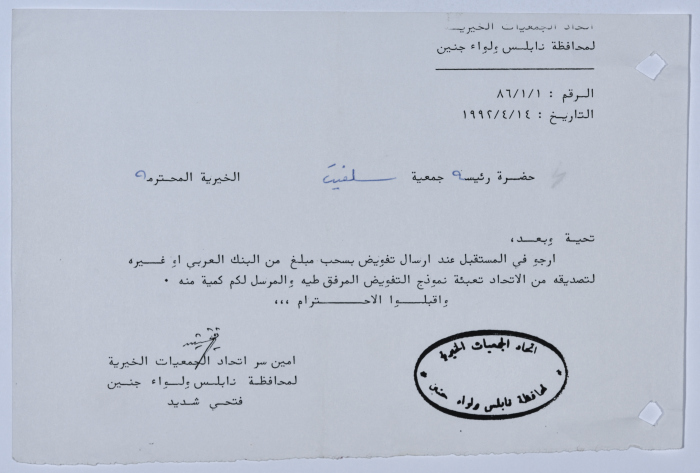 اتحاد الجمعيات الخيرية
لمحافظة نابلس ولواء جنين
الرقم : ٨٦/١/١
التاريخ : ١٩٩٢/٤/١٤
حضرة رئيسة جمعية سلفيت الخيرية المحترمة
تحية وبعد،
ارجو في المستقبل عند ارسال تفويض بسحب مبلغ من البنك العربي او غيره
لتصديقه من الاتحاد تعبئة نموذج التفويض المرفق طيه والمرسل لكم كمية منه ٠
واقبلوا الاحترام ،،،
امين سر اتحاد الجمعيات الخيرية
لمحافظة نابلس ولواء جنين
فتحي شديد
اتحاد الجمعيات الخيرية
لمحافظة نابلس ولواء جنين